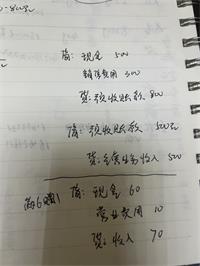 借：现金 500
销售费用 300
贷：预收账款 800
借：预收账款 500元
贷：主营业务收入 500
满6赠1 借：现金 60
营业费用 10
贷：收入 70